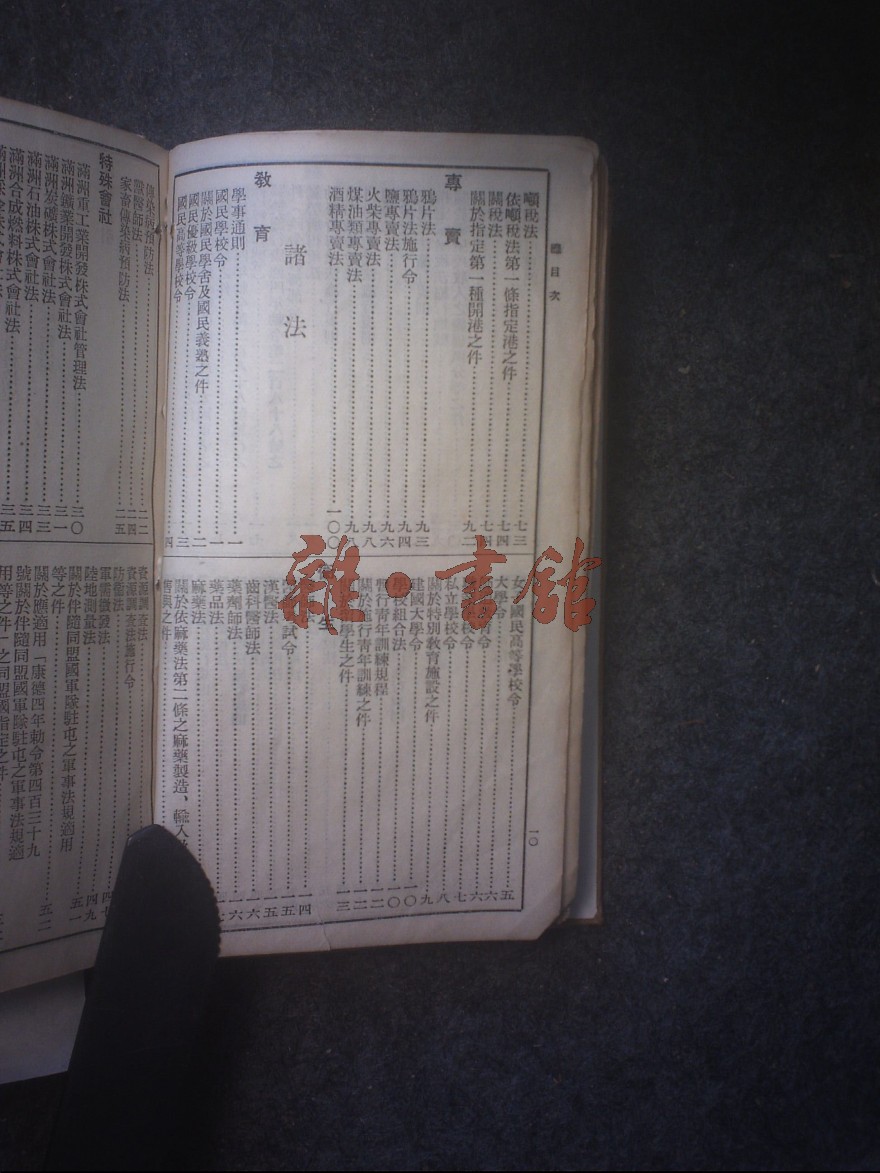 總目次
噸稅法 七三
依噸稅法第一條指定港之件 七四
關稅法 七四
關於指定第一種開港之件 九二
專賣
鴉片法 九三
鴉片法施行令 九四
鹽專賣法 九六
火柴專賣法 九八
煤油類專賣法 九八
酒精專賣法 一〇〇
諸法
教育
學事通則 一
國民學校令 一
關於國民學舍及國民義塾之件 二
國民優級學校令 三
國民高等學校令 四
國民高等學校令 五
大學令 六
私立學校令 七
關於特別教育施設之件 九
建國大學令 一〇
學校組合法 一〇
暫行青年訓練規程 一二
關於施行青年訓練之件 一二
學生之件 一三
生
試令
漢醫法 五
齒科醫師法 六
藥劑師法 六
藥品法
麻藥法
關於依麻藥法第二條之麻藥製造、輸入
一〇
雜·書館
家畜傳染病預防法 二五
特殊會社
滿洲重工業開發株式會社管理法 三〇
滿洲鑛業開發株式會社法 三一
滿洲炭礦株式會社法 三三
滿洲石油株式會社法 三四
滿洲合成燃料株式會社法 三五
資源調查法
資源調查法施行令
防衛法
軍需徵發法 四七
陸地測量法 四九
關於伴隨同盟國軍隊駐屯之軍事法規適用
等之件 五一
關於應適用「康德四年勅令第四百三十九
號關於伴隨同盟國軍隊駐屯之軍事法規適
用等之件」之同盟國指定之件